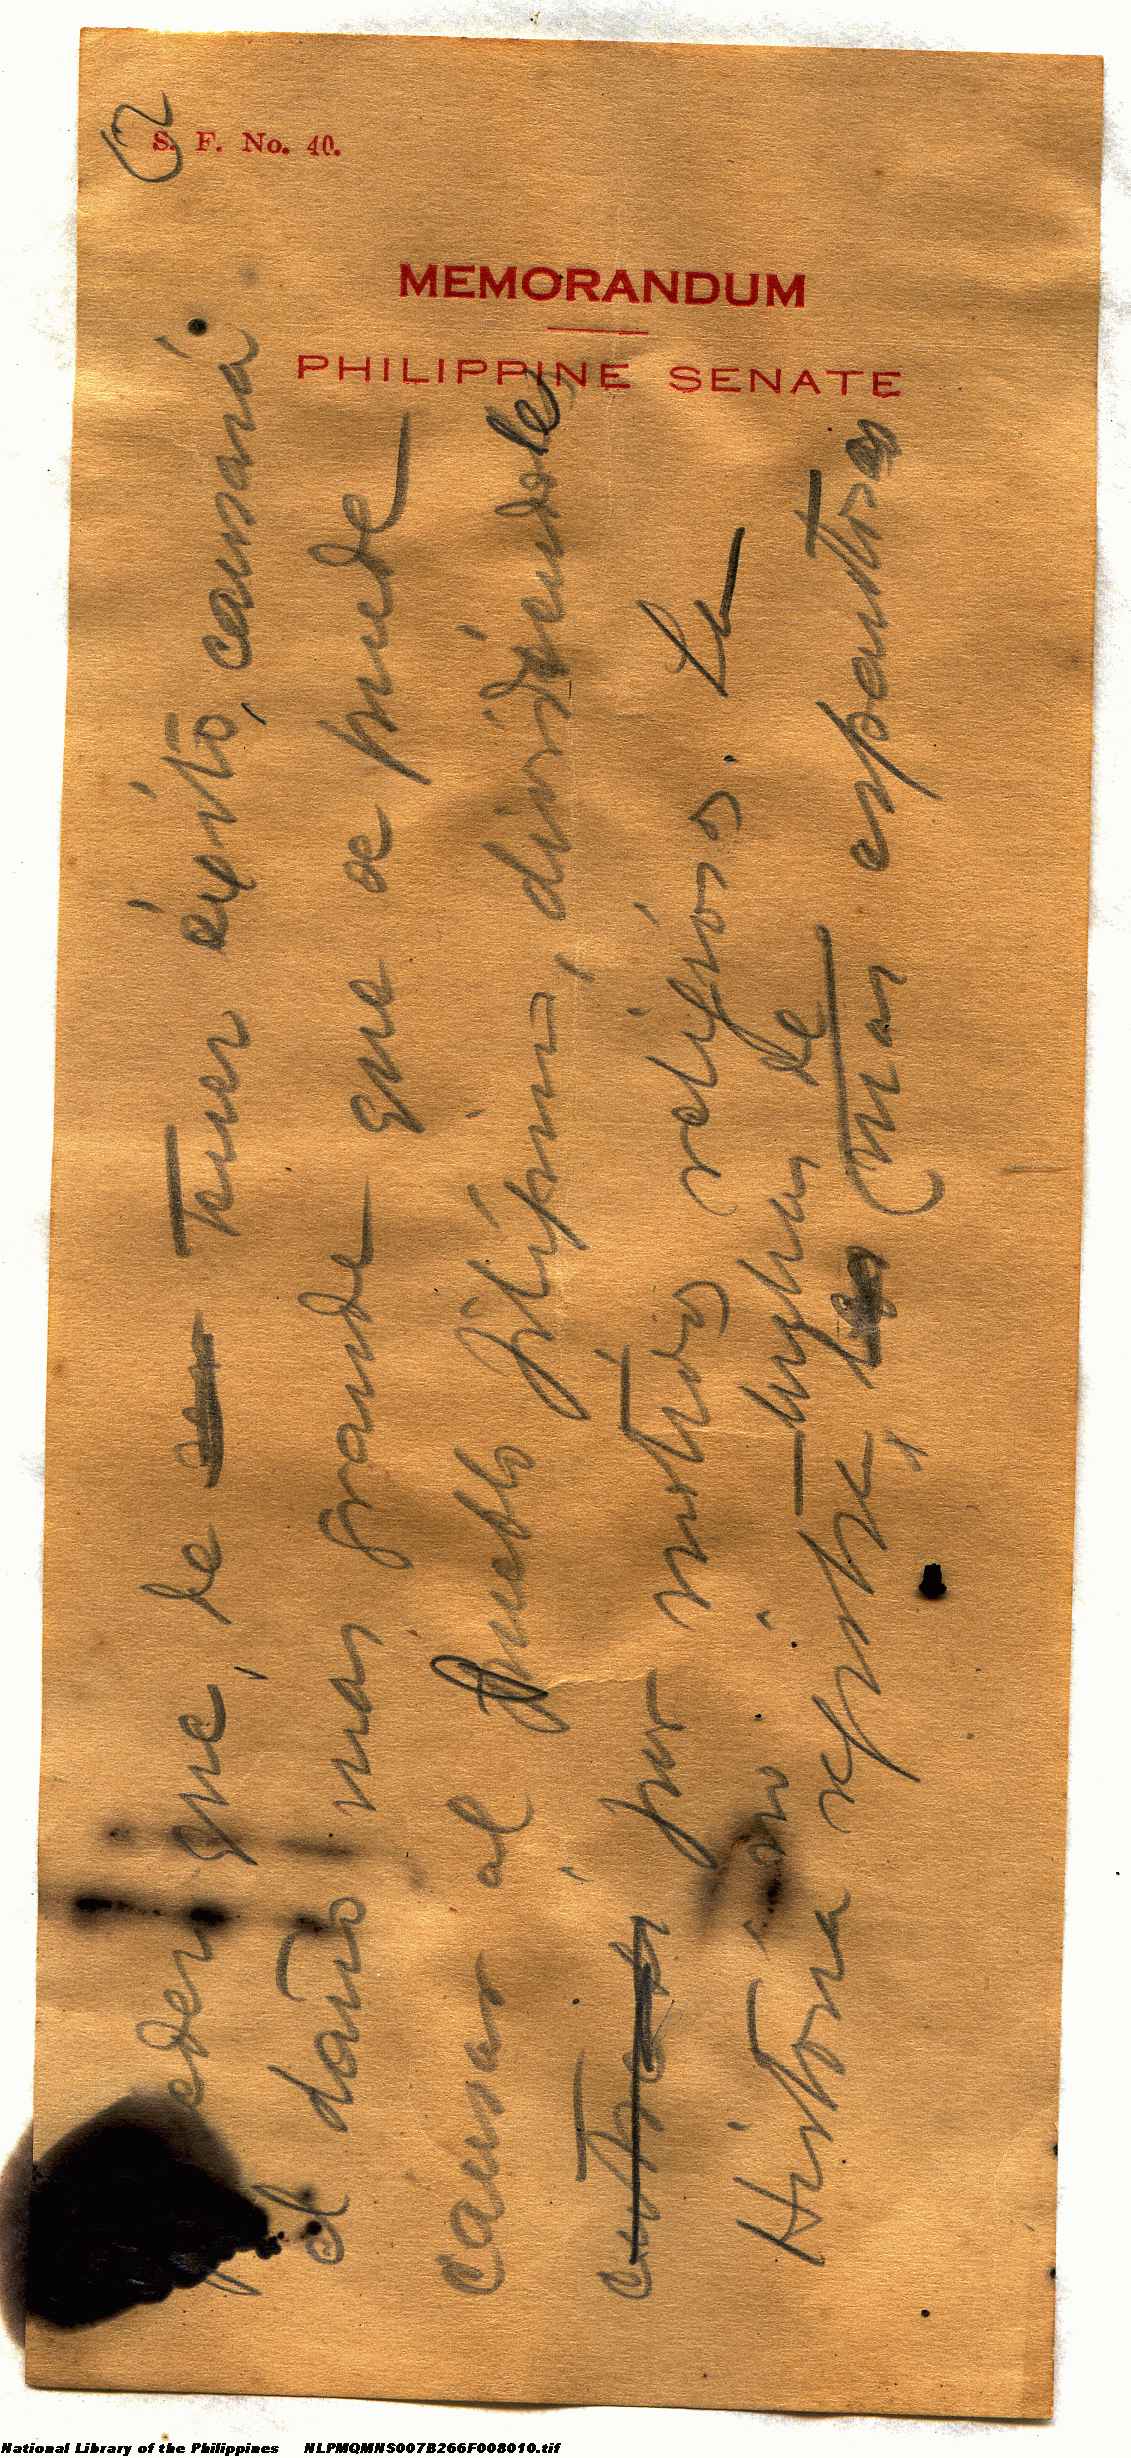 12
S. F. No. 40.
MEMORANDUM
PHILIPPINE SENATE
que, de tener éxito, causará
el daño mas grande que se puede
causar al pueblo filipino, dividiéndole
por motivos religiosos. La
Historia
registra, las (mas espantosas
National Library of the Philippines NLPMQMNS007B266F008010.tif